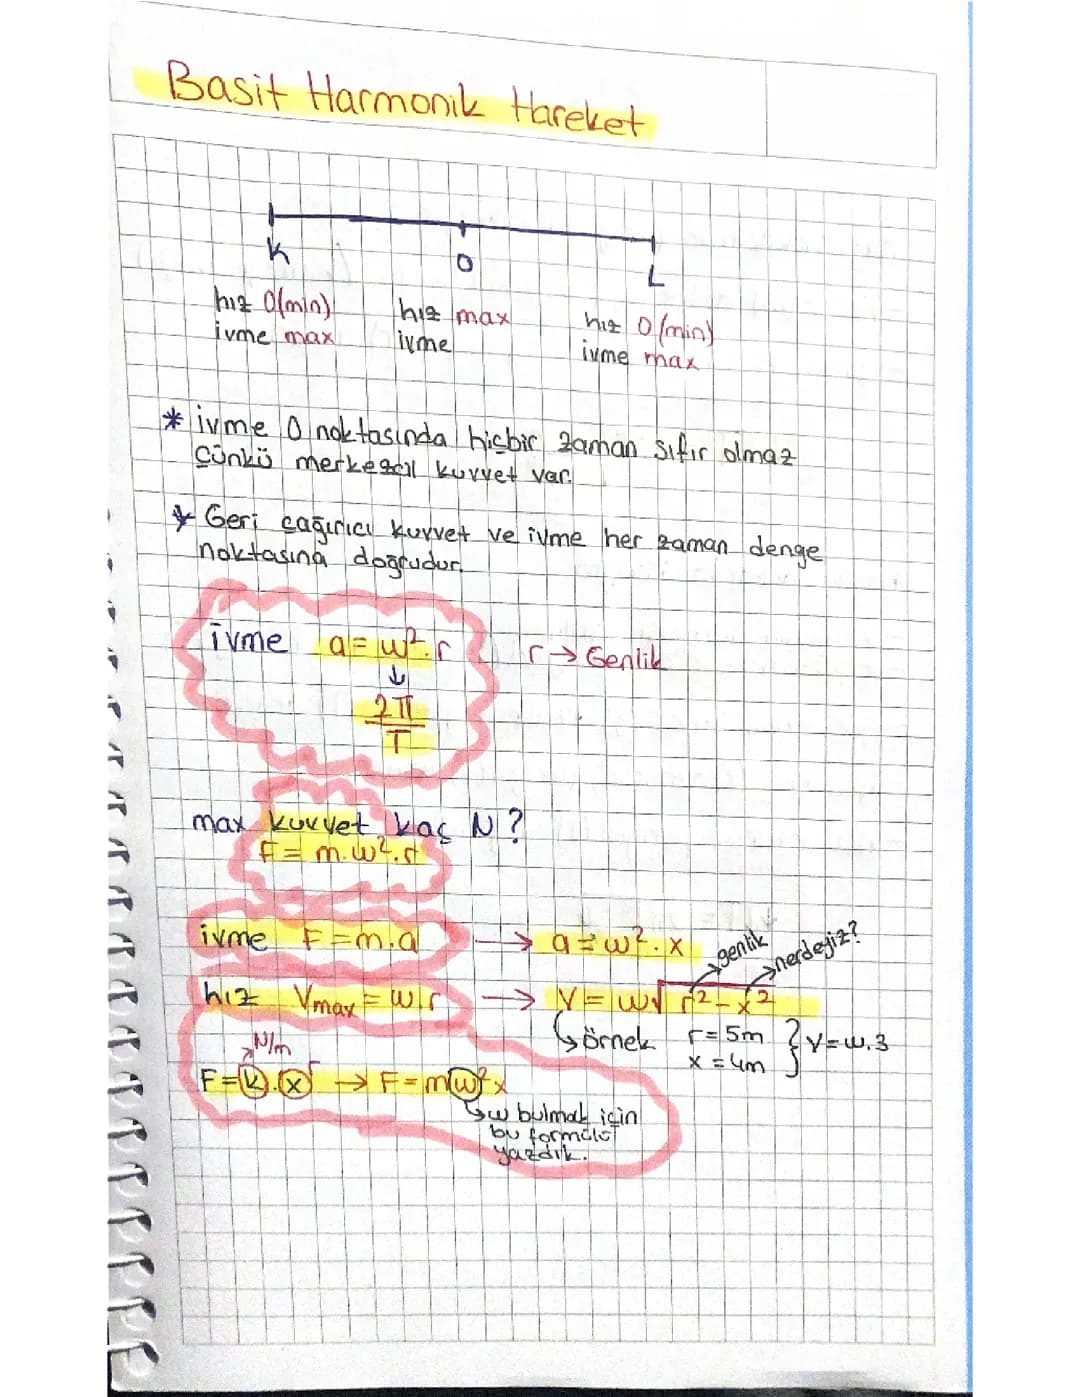 Basit Harmonik Hareket
K O L
hız 0(min) hız max hız 0 (min)
ivme max ivme ivme max
* ivme O noktasında hiçbir zaman sıfır olmaz
Çünkü merkezcil kuvvet var.
* Geri çağırıcı kuvvet ve ivme her zaman denge
noktasına doğrudur.
İvme a = w².r r → Genlik
↓
2π
T
max kuvvet kaç N ?
F = m.w².r
ivme F = m.a → a = w².x
genlik nerdeyiz?
hız Vmax = w.r → V = w√r²-x²
örnek r = 5m } V = w.3
x = 4m
N/m
F = k.x → F = mw²x
w bulmak için
bu formülü
yazdık.